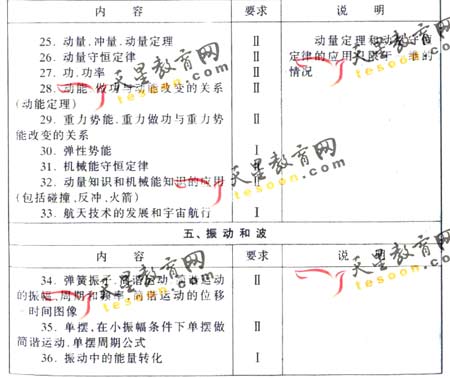 内 容 要求 说 明
25. 动量、冲量、动量定理 Ⅱ 动量定理和动
26. 动量守恒定律 Ⅱ 定律的应用只限于
27. 功、功率 Ⅱ 情况
28. 动能 做功与动能改变的关系 Ⅱ
(动能定理)
29. 重力势能、重力做功与重力势 Ⅱ
能改变的关系
30. 弹性势能 Ⅰ
31. 机械能守恒定律
32. 动量知识和机械能知识的应用 Ⅱ
(包括碰撞、反冲、火箭)
33. 航天技术的发展和宇宙航行 Ⅰ
五、振动和波
内 容 要求 说
34. 弹簧振子 Ⅱ
的振幅、周期和频率,简谐运动的位移
-时间图像
35. 单摆,在小振幅条件下单摆做 Ⅱ
简谐运动、单摆周期公式
36. 振动中的能量转化 Ⅰ
天星教育网
tesoon.com
天星教育网
tesoon.com
天星教育网
tesoon.com
天星教育网
tesoon.com
天星教育网
tesoon.com